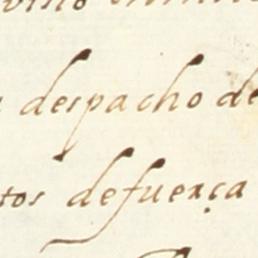 despacho de
tos defuerça